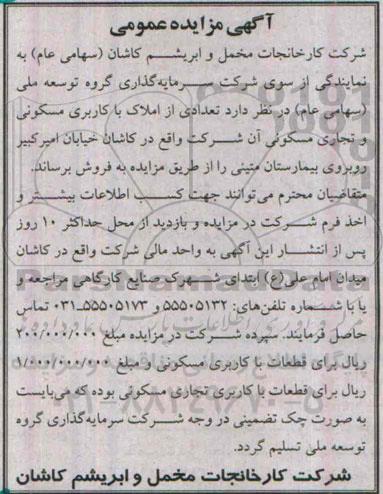 آگهی مزایده عمومی
شرکت کارخانجات مخمل و ابریشم کاشان (سهامی عام) به
نمایندگی از سوی شرکت سرمایه‌گذاری گروه توسعه ملی
(سهامی عام) در نظر دارد تعدادی از املاک با کاربری مسکونی
و تجاری مسکونی آن شرکت واقع در کاشان خیابان امیرکبیر
روبروی بیمارستان متینی را از طریق مزایده به فروش برساند.
متقاضیان محترم می‌توانند جهت کسب اطلاعات بیشتر و
اخذ فرم شرکت در مزایده و بازدید از محل حداکثر ۱۰ روز
پس از انتشار این آگهی به واحد مالی شرکت واقع در کاشان
میدان امام علی(ع) ابتدای شهرک صنایع کارگاهی مراجعه و
یا با شماره تلفن‌های: ۵۵۵۰۵۱۳۲ و ۵۵۵۰۵۱۷۳-۰۳۱ تماس
حاصل فرمایند. سپرده شرکت در مزایده مبلغ ۲۰۰/۰۰۰/۰۰۰
ریال برای قطعات با کاربری مسکونی و مبلغ ۱/۰۰۰/۰۰۰/۰۰۰
ریال برای قطعات با کاربری تجاری مسکونی بوده که می‌بایست
به صورت چک تضمینی در وجه شرکت سرمایه‌گذاری گروه
توسعه ملی تسلیم گردد.
شرکت کارخانجات مخمل و ابریشم کاشان
ParsNamadData